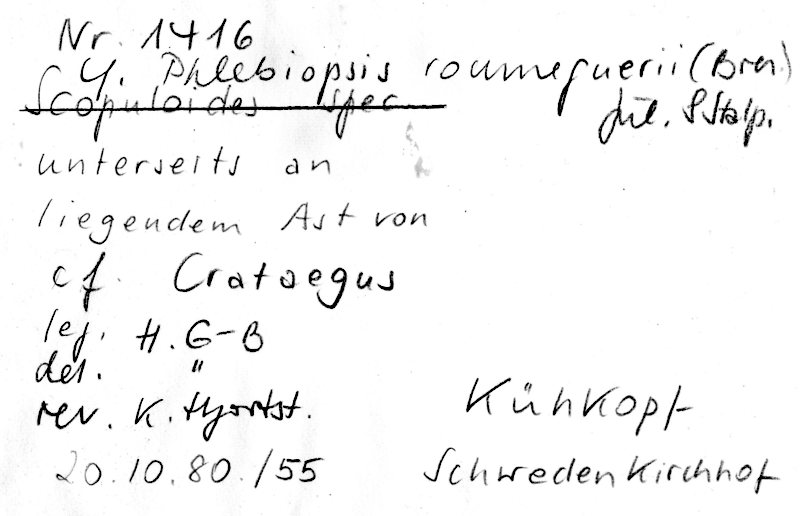 Nr. 1416
cf. Phlebiopsis roumeguerii (Bres.)
Jül. & Stalp.
Scopuloides spec
unterseits an
liegendem Ast von
cf. Crataegus
leg. H. G-B
det. "
rev. K. Hjortst.
Kühkopf
20.10.80./55
Schwedenkirchhof